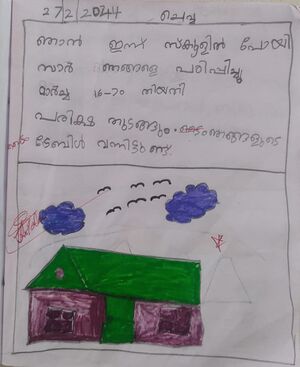 27/2/2044 ചൊവ്വ
ഞാൻ ഇന്ന് സ്കൂളിൽ പോയി
സാർ ഞങ്ങളെ പഠിപ്പിച്ചു
മാർച്ച 16-ാം
പരിക്ഷ തുടങ്ങും. ഞങ്ങളുടെ
ടേബിൾ വന്നിട്ടുണ്ട്.